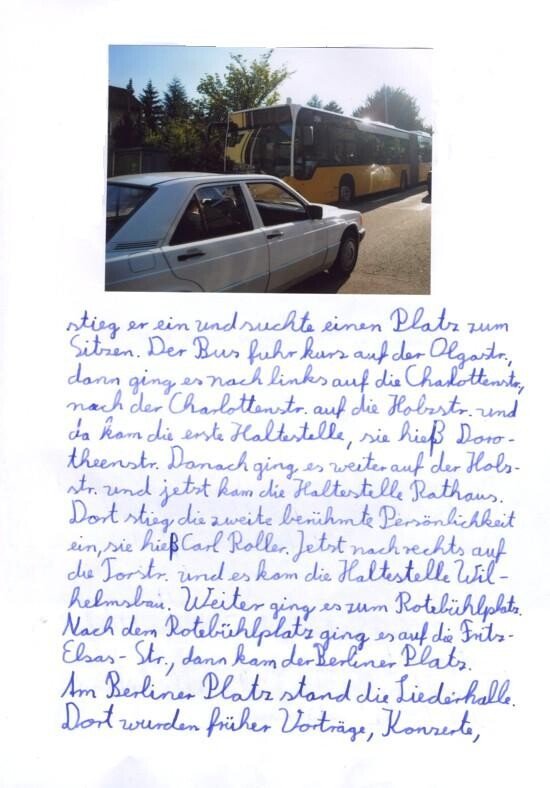 stieg er ein und suchte einen Platz zum
Sitzen. Der Bus fuhr kurz auf der Olgastr.,
dann ging es nach links auf die Charlottenstr.,
nach der Charlottenstr. auf die Holzstr. und
da kam die erste Haltestelle, sie hieß Doro-
theenstr. Danach ging es weiter auf der Holz-
str. und jetzt kam die Haltestelle Rathaus.
Dort stieg die zweite berühmte Persönlichkeit
ein, sie hieß Carl Roller. Jetzt nach rechts auf
die Torstr. und es kam die Haltestelle Wil-
helmsbau. Weiter ging es zum Rotebühlplatz.
Nach dem Rotebühlplatz ging es auf die Fritz-
Elsas-Str., dann kam der Berliner Platz.
Am Berliner Platz stand die Liederhalle.
Dort wurden früher Vorträge, Konzerte,